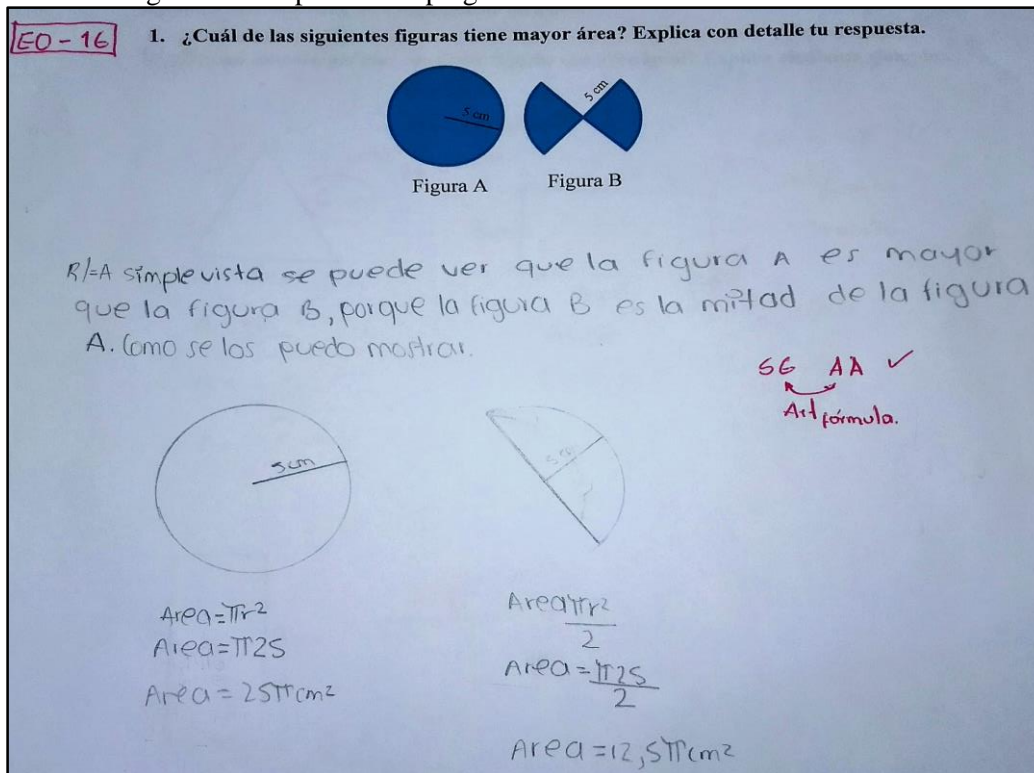 EO-16
1. ¿Cuál de las siguientes figuras tiene mayor área? Explica con detalle tu respuesta.
5 cm
5 cm
Figura A
Figura B
R/=A simple vista se puede ver que la figura A es mayor
que la figura B, porque la figura B es la mitad de la figura
A. Como se los puedo mostrar.
SG AA ✓
Art fórmula.
5cm
5cm
Area=πr²
Area=π25
Area=25πcm²
Area πr²
2
Area=π25
2
Area=12,5πcm²